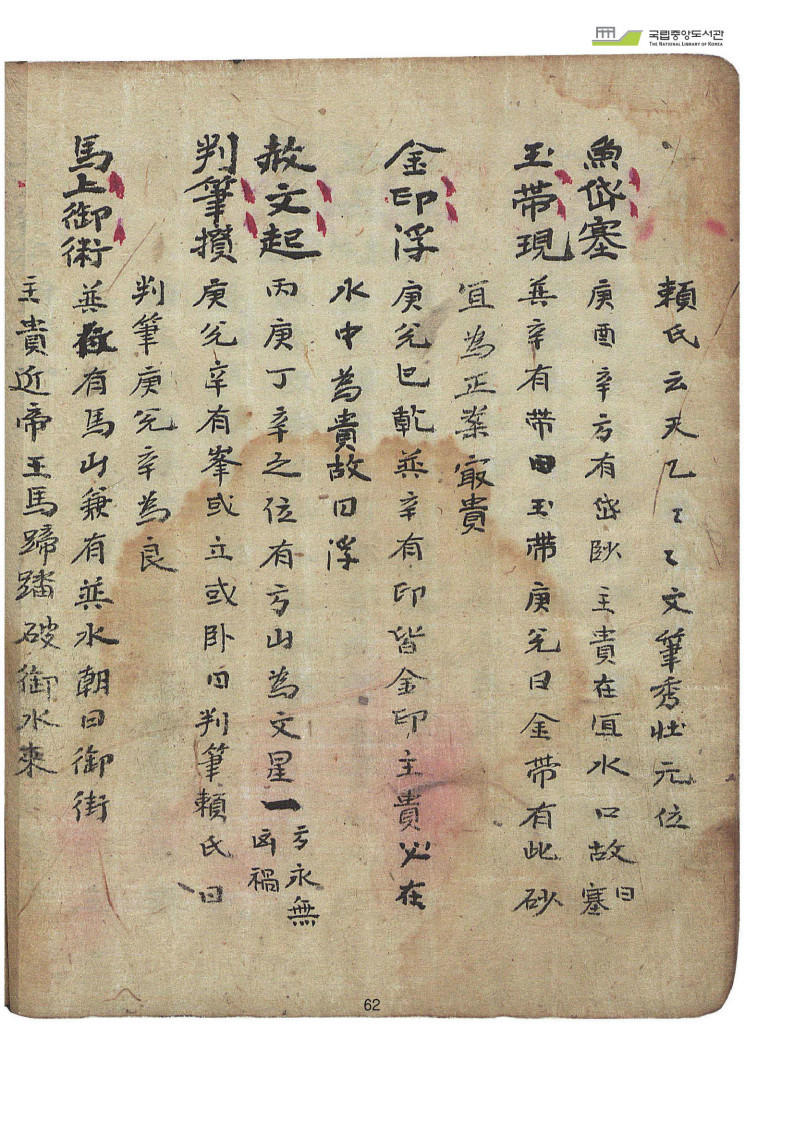 국립중앙도서관
THE NATIONAL LIBRARY OF KOREA
頼氏云天乙〻〻文筆秀壯元位
魚帒塞 庚酉辛方有帒砂主貴在宜水口故曰塞
玉带現 巽辛有带曰玉带庚兌曰金带有此砂
宜為正案㝡貴
金印浮 庚兌巳乾巽辛有印皆金印主貴必在
水中為貴故曰浮
赦文起 丙庚丁辛之位有方山為文星一方永無凶禍
判筆攢 庚兌辛有峯或立或卧曰判筆頼氏曰
判筆庚兌辛為良
馬上御術 巽有馬山兼有巽水朝曰御街
主貴近帝王馬蹄踏破御水来
62